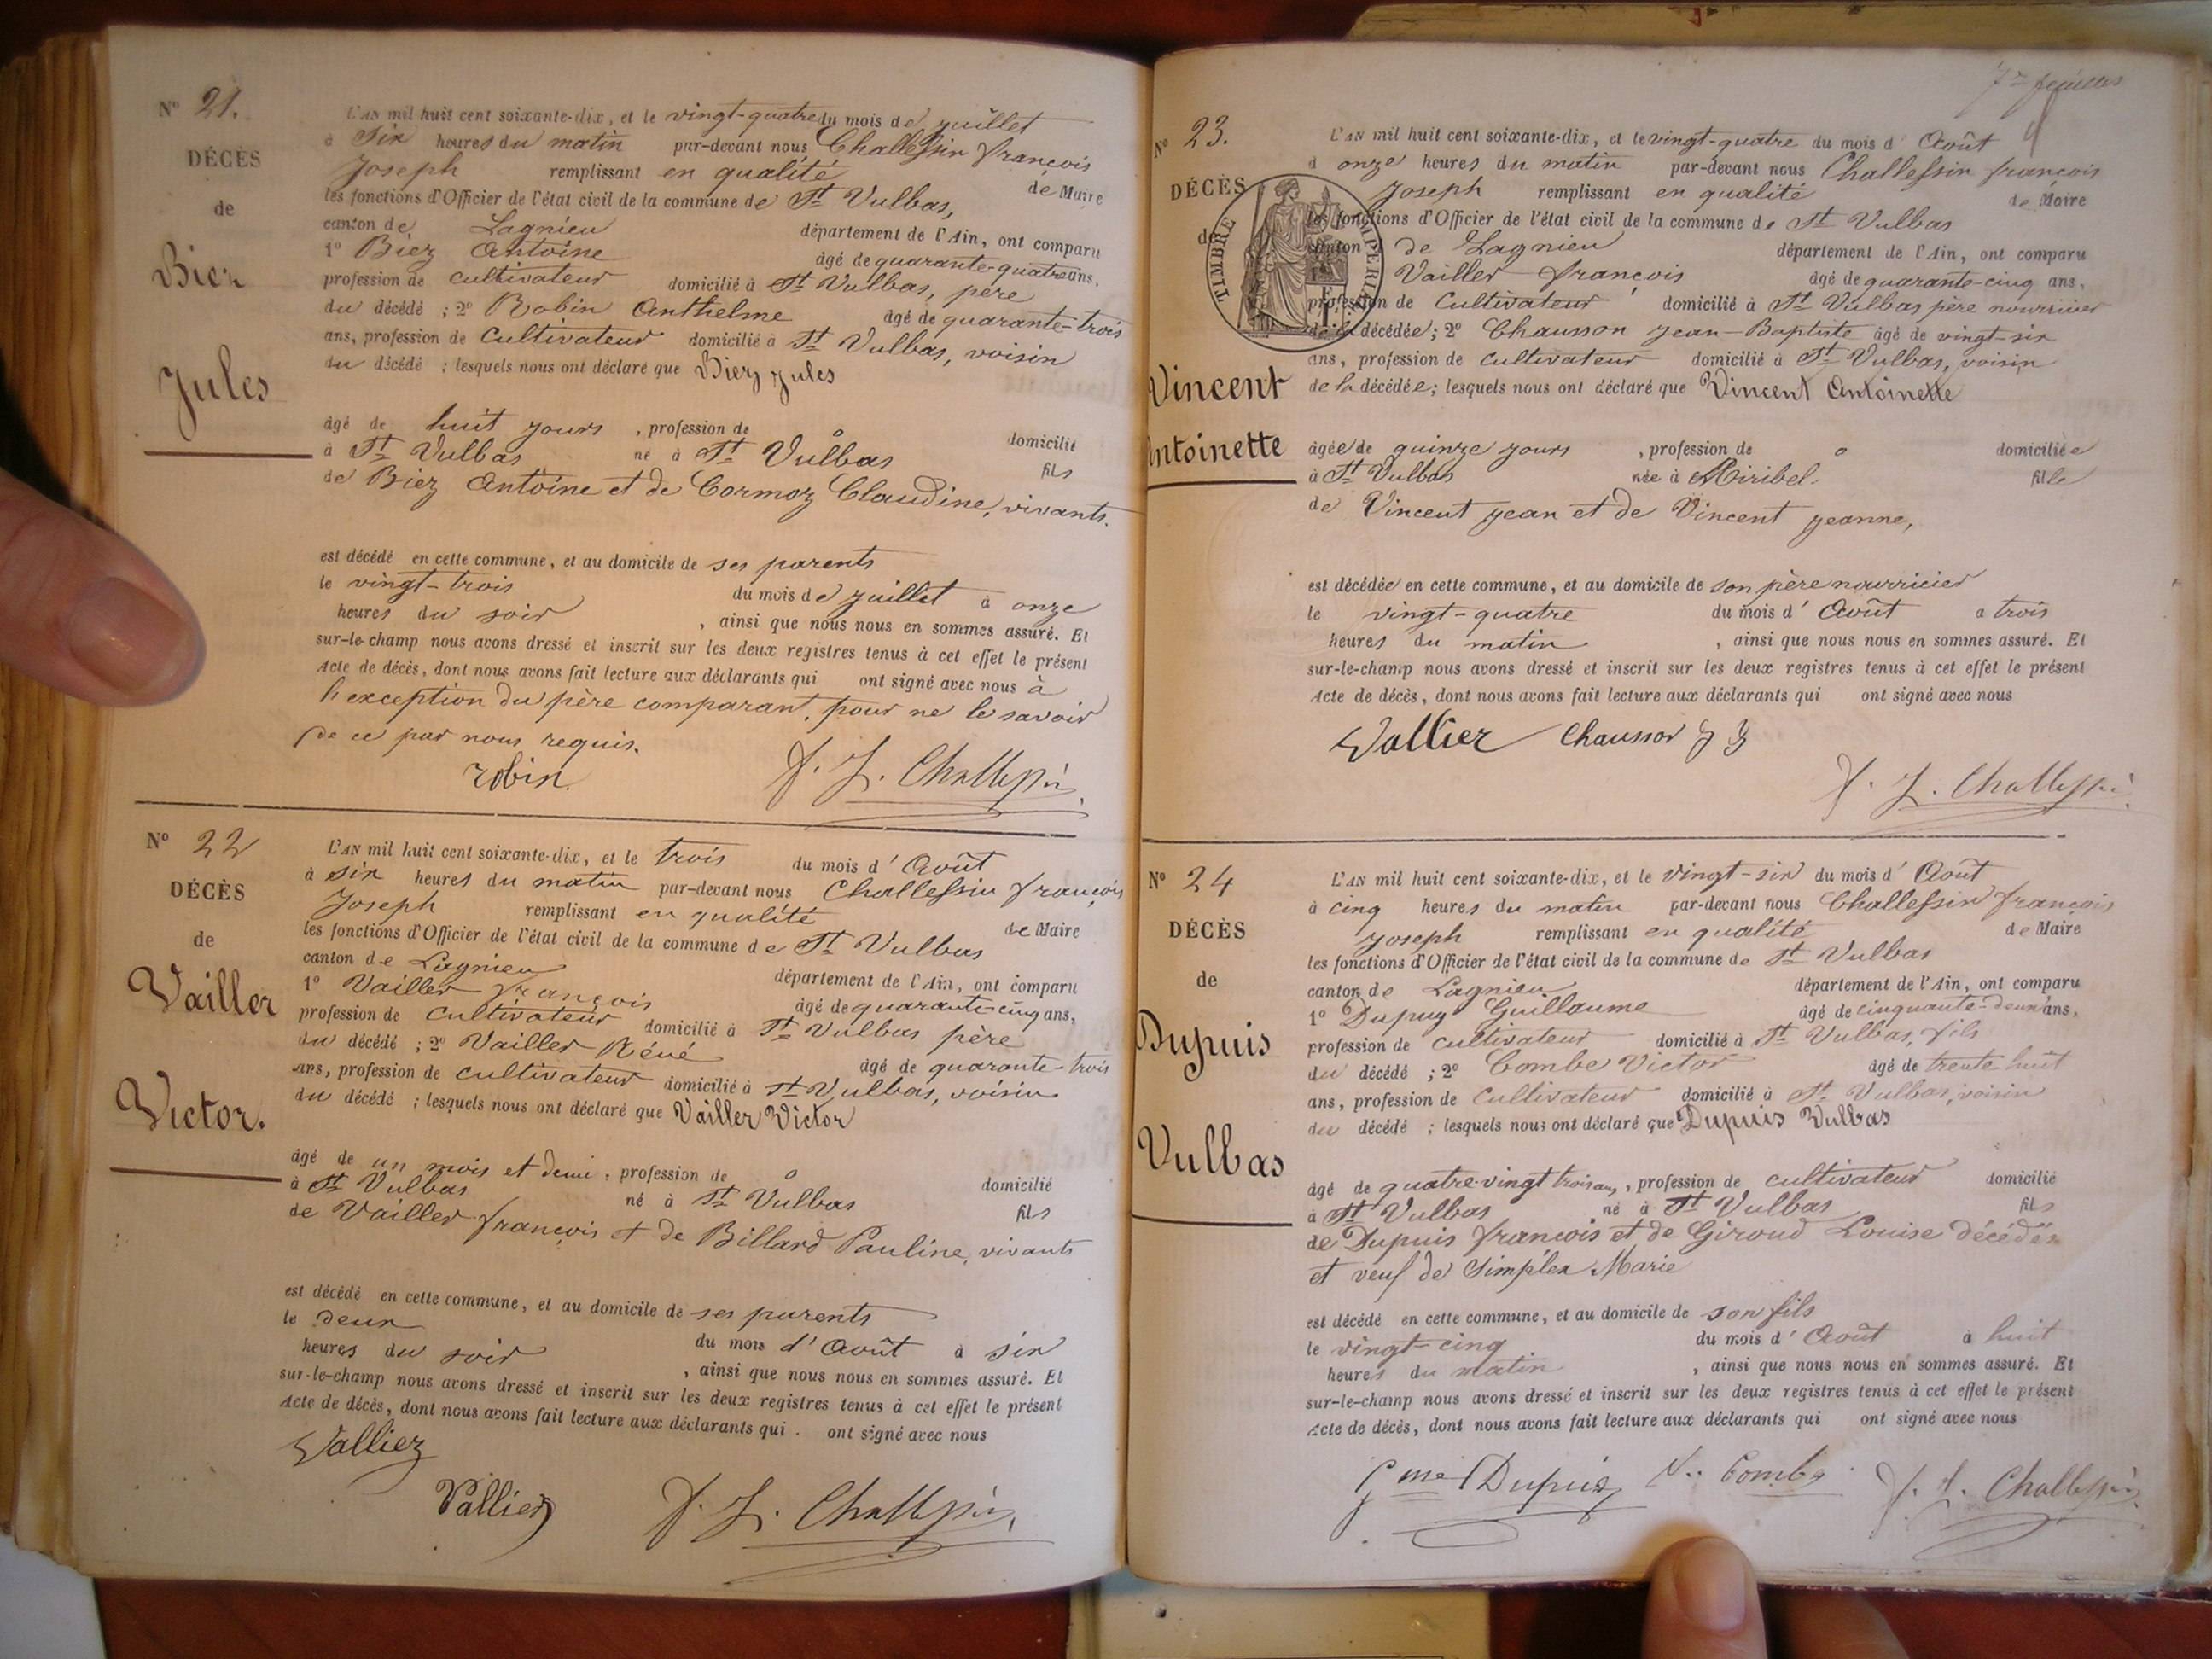 N° 21.
DÉCÈS
de
Biez
Jules
L'AN mil huit cent soixante-dix, et le vingt-quatre du mois de juillet
à Six heures du matin par-devant nous Challessin françois
Joseph remplissant en qualité de Maire
les fonctions d'Officier de l'état civil de la commune de St Vulbas,
canton de Lagnieu département de l'Ain, ont comparu
1° Biez Antoine âgé de quarante-quatre ans,
profession de cultivateur domicilié à St Vulbas, père
du décédé ; 2° Robin Anthelme âgé de quarante-trois
ans, profession de Cultivateur domicilié à St Vulbas, voisin
du décédé ; lesquels nous ont déclaré que Biez Jules
âgé de huit jours , profession de o domicilié
à St Vulbas né à St Vulbas fils
de Biez Antoine et de Cormoz Claudine, vivants.
est décédé en cette commune, et au domicile de ses parents
le vingt-trois du mois de juillet à onze
heures du soir , ainsi que nous nous en sommes assuré. Et
sur-le-champ nous avons dressé et inscrit sur les deux registres tenus à cet effet le présent
Acte de décès, dont nous avons fait lecture aux déclarants qui ont signé avec nous à
l'exception du père comparant, pour ne le savoir
de ce par nous requis.
robin F. J. Challessin
N° 22
DÉCÈS
de
Vailler
Victor.
L'AN mil huit cent soixante-dix, et le trois du mois d'Août
à six heures du matin par-devant nous Challessin françois
Joseph remplissant en qualité de Maire
les fonctions d'Officier de l'état civil de la commune de St Vulbas
canton de Lagnieu département de l'Ain, ont comparu
1° Vailler françois âgé de quarante-cinq ans,
profession de cultivateur domicilié à St Vulbas père
du décédé ; 2° Vailler Réné âgé de quarante-trois
ans, profession de cultivateur domicilié à St Vulbas, voisin
du décédé ; lesquels nous ont déclaré que Vailler Victor
âgé de un mois et demi , profession de o domicilié
à St Vulbas né à St Vulbas fils
de Vailler françois et de Billard Pauline, vivants
est décédé en cette commune, et au domicile de ses parents
le deux du mois d'Août à six
heures du soir , ainsi que nous nous en sommes assuré. Et
sur-le-champ nous avons dressé et inscrit sur les deux registres tenus à cet effet le présent
Acte de décès, dont nous avons fait lecture aux déclarants qui . ont signé avec nous
Vallier
Vallier F. J. Challessin
7e feuillet
N° 23.
DÉCÈS
de
TIMBRE IMPERIAL
Vincent
Antoinette
L'AN mil huit cent soixante-dix, et le vingt-quatre du mois d'Août
à onze heures du matin par-devant nous Challessin françois
Joseph remplissant en qualité de Maire
les fonctions d'Officier de l'état civil de la commune de St Vulbas
canton de Lagnieu département de l'Ain, ont comparu
Vailler françois âgé de quarante-cinq ans,
profession de Cultivateur domicilié à St Vulbas père nourricier
de la décédée ; 2° Chausson Jean-Baptiste âgé de vingt-six
ans, profession de cultivateur domicilié à St Vulbas, voisin
de la décédée ; lesquels nous ont déclaré que Vincent Antoinette
âgée de quinze jours , profession de o domiciliée
à St Vulbas née à Miribel. fille
de Vincent Jean et de Vincent Jeanne,
est décédée en cette commune, et au domicile de son père nourricier
le vingt-quatre du mois d'Août à trois
heures du matin , ainsi que nous nous en sommes assuré. Et
sur-le-champ nous avons dressé et inscrit sur les deux registres tenus à cet effet le présent
Acte de décès, dont nous avons fait lecture aux déclarants qui ont signé avec nous
Vallier Chausson
F. J. Challessin
N° 24
DÉCÈS
de
Dupuis
Vulbas
L'AN mil huit cent soixante-dix, et le vingt-six du mois d'Août
à cinq heures du matin par-devant nous Challessin françois
Joseph remplissant en qualité de Maire
les fonctions d'Officier de l'état civil de la commune de St Vulbas
canton de Lagnieu département de l'Ain, ont comparu
1° Dupuy Guillaume âgé de cinquante-deux ans,
profession de cultivateur domicilié à St Vulbas, fils
du décédé ; 2° Combe Victor âgé de trente huit
ans, profession de cultivateur domicilié à St Vulbas, voisin
du décédé ; lesquels nous ont déclaré que Dupuis Vulbas
âgé de quatre-vingt trois ans , profession de cultivateur domicilié
à St Vulbas né à St Vulbas fils
de Dupuis françois et de Giroud Louise décédés
et veuf de Simplex Marie
est décédé en cette commune, et au domicile de son fils
le vingt-cinq du mois d'Août à huit
heures du matin , ainsi que nous nous en sommes assuré. Et
sur-le-champ nous avons dressé et inscrit sur les deux registres tenus à cet effet le présent
Acte de décès, dont nous avons fait lecture aux déclarants qui ont signé avec nous
Gme Dupuis V. Combe F. J. Challessin